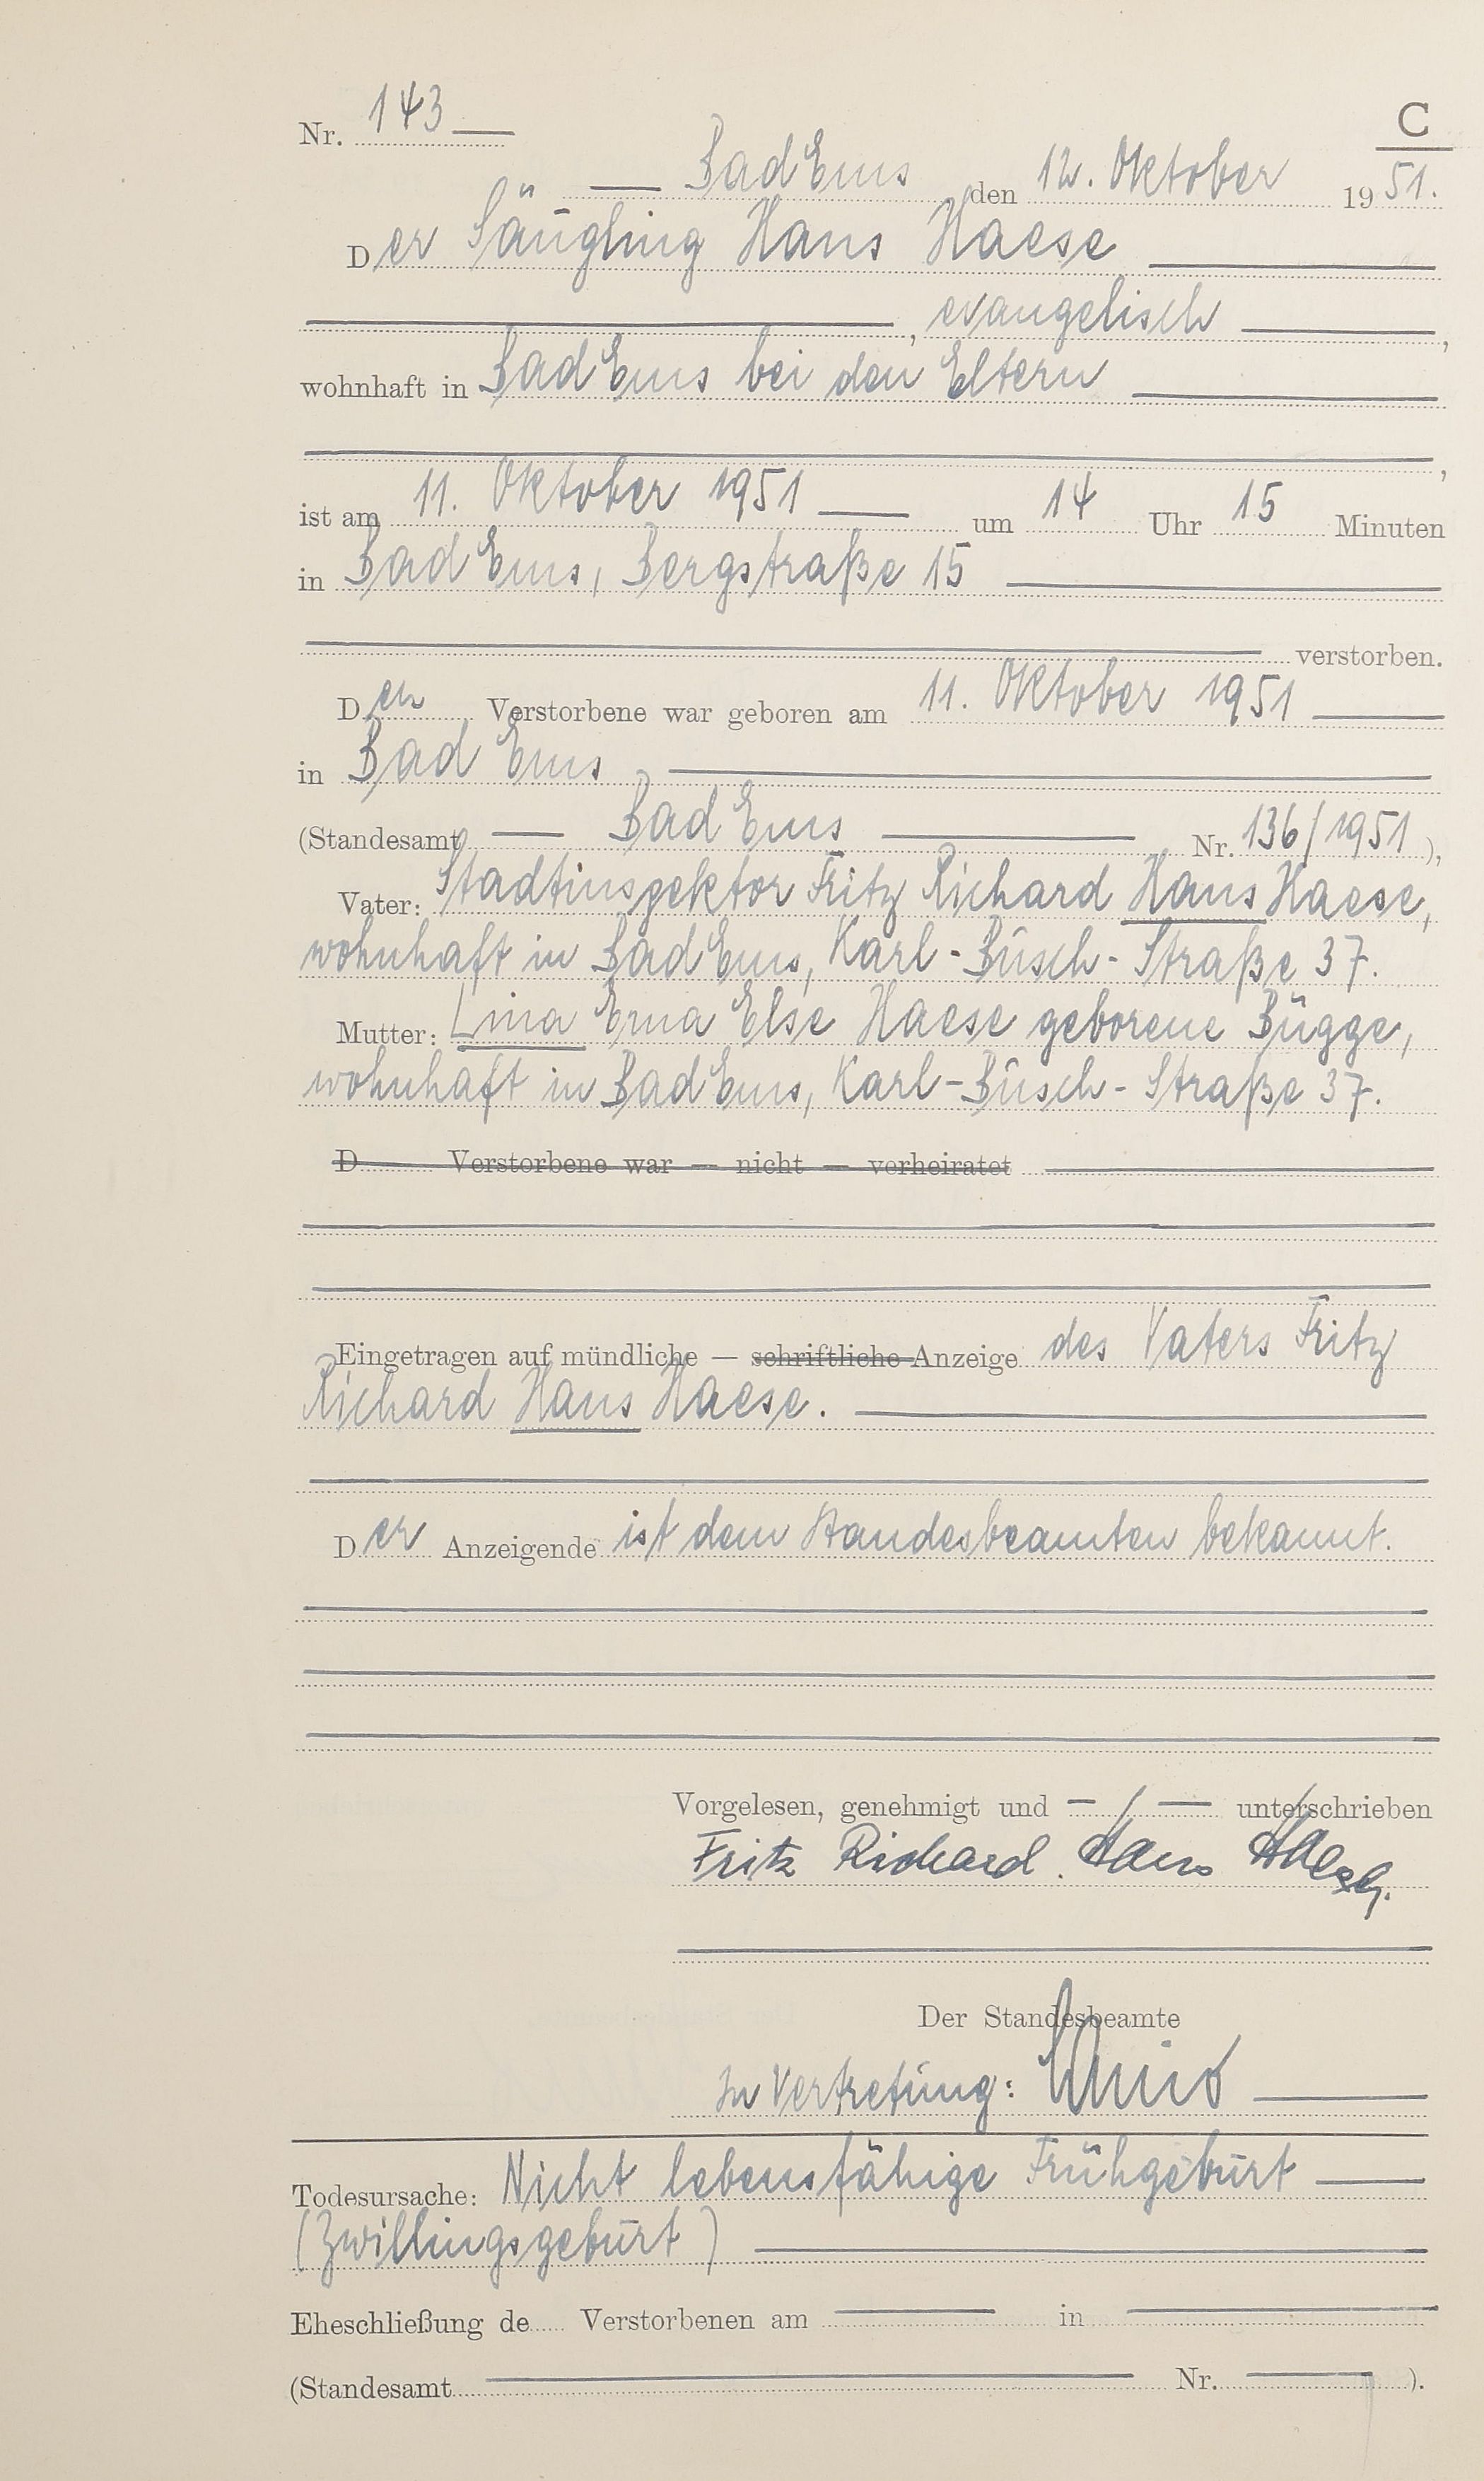 C
Nr. 143
Bad Ems den 12. Oktober 1951.
Der Säugling Hans Haese
, evangelisch,
wohnhaft in Bad Ems bei den Eltern
,
ist am 11. Oktober 1951 um 14 Uhr 15 Minuten
in Bad Ems, Bergstraße 15
verstorben.
Der Verstorbene war geboren am 11. Oktober 1951
in Bad Ems
(Standesamt Bad Ems Nr. 136/1951),
Vater: Stadtinspektor Fritz Richard Hans Haese,
wohnhaft in Bad Ems, Karl-Busch-Straße 37.
Mutter: Lina Erna Else Haese geborene Bügge,
wohnhaft in Bad Ems, Karl-Busch-Straße 37.
D Verstorbene war — nicht — verheiratet
Eingetragen auf mündliche — schriftliche Anzeige des Vaters Fritz
Richard Hans Haese.
Der Anzeigende ist dem Standesbeamten bekannt.
Vorgelesen, genehmigt und unterschrieben
Fritz Richard Hans Haese.
Der Standesbeamte
In Vertretung:
Todesursache: Nicht lebensfähige Frühgeburt
(Zwillingsgeburt)
Eheschließung de Verstorbenen am in
(Standesamt Nr. ).